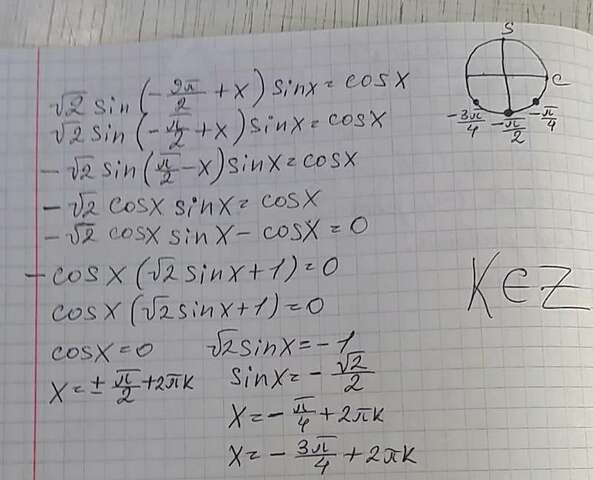 √2 sin(-9π/2 + x) sinx = cosx
√2 sin(-π/2 + x) sinx = cosx
-√2 sin(π/2 - x) sinx = cosx
-√2 cosx sinx = cosx
-√2 cosx sinx - cosx = 0
-cosx (√2 sinx + 1) = 0
cosx (√2 sinx + 1) = 0
cosx = 0 √2 sinx = -1
x = ± π/2 + 2πk sinx = -√2/2
x = -π/4 + 2πk
x = -3π/4 + 2πk
S
C
-3π/4 -π/2 -π/4
K∈Z